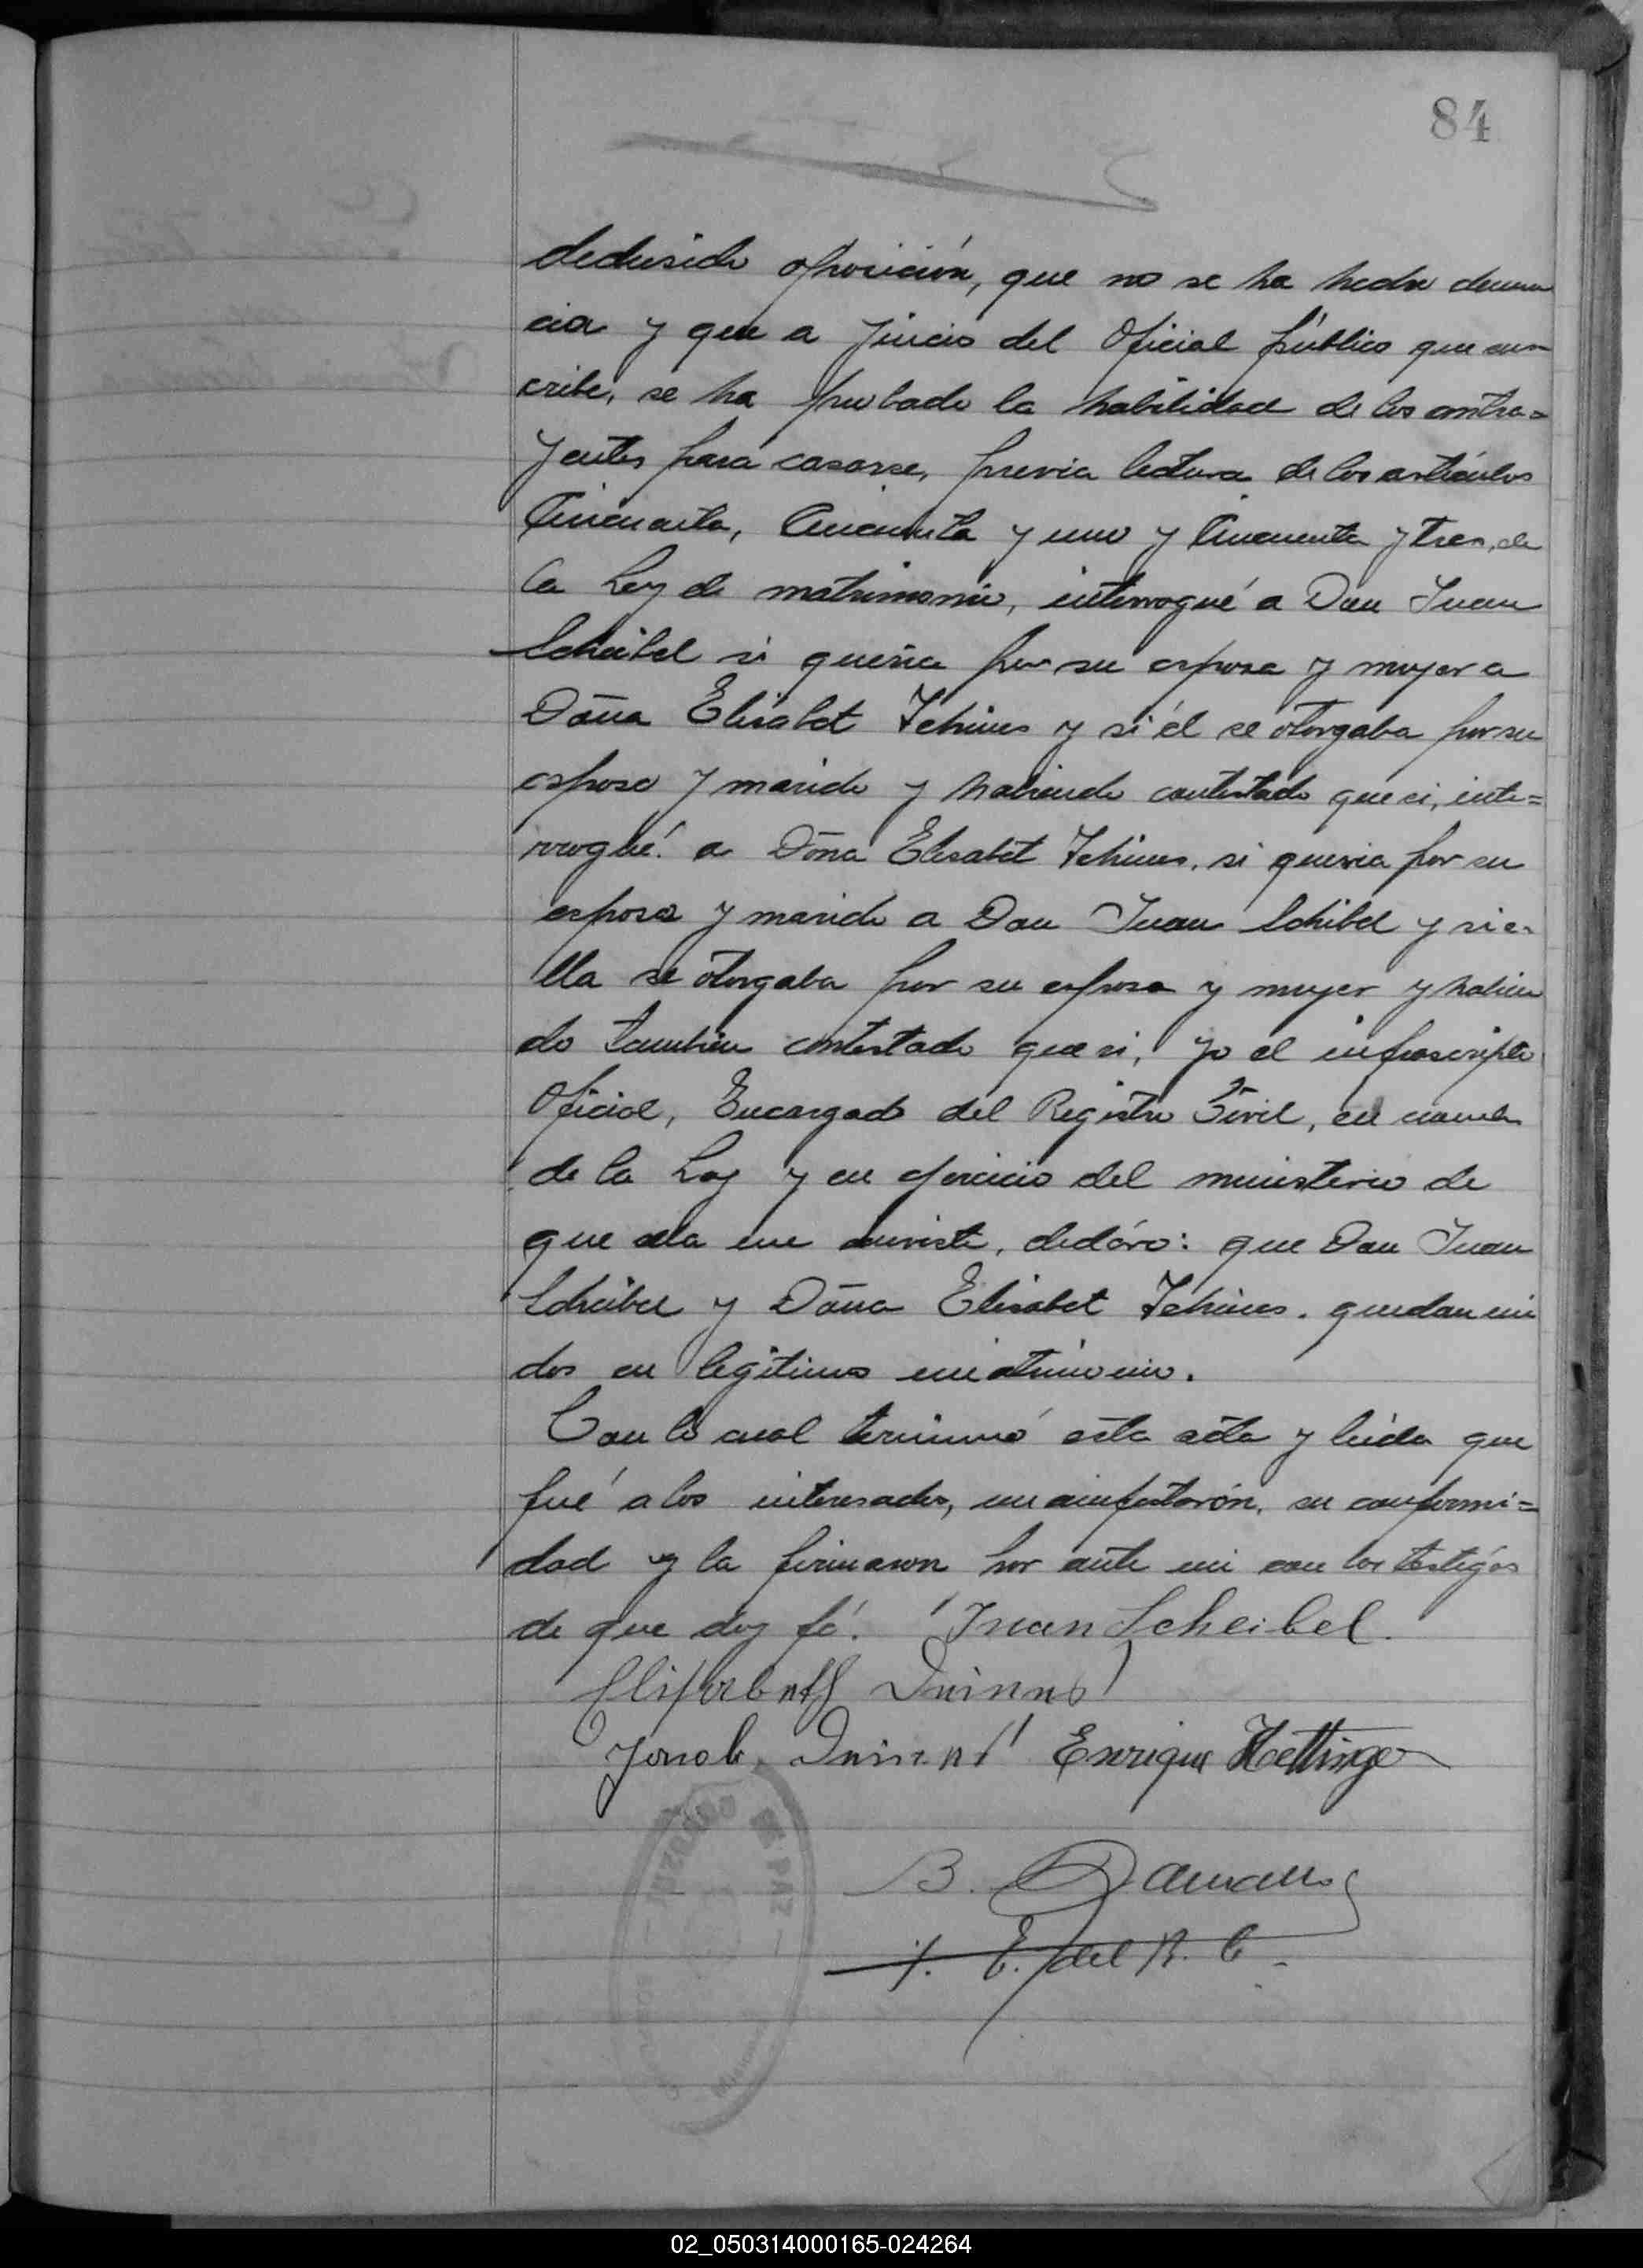 84
deducido oposición, que no se ha hecho denun
cia y que a juicio del Oficial público que sus
cribe, se ha probado la habilidad de los contra=
yentes para casarse, previa lectura de los artículos
Cincuenta, Cincuenta y uno y Cincuenta y tres, de
la Ley de matrimonio, interrogué a Don Juan
Scheibel si queria por su esposa y mujer a
Doña Elisabet Tehines y si él se otorgaba por su
esposo y marido y habiendo contestado que si, inte=
rrogué a Doña Elisabet Tehines, si queria por su
esposo y marido a Don Juan Schibel y si e-
lla se otorgaba por su esposa y mujer y habien
do tambien contestado que si, yo el infrascripto
Oficial, Encargado del Registro Civil, en nombre
de la Ley y en ejercicio del ministerio de
que ella me inviste, decláro: que Don Juan
Scheibel y Doña Elisabet Tehines. quedan uni
dos en legítimo matrimonio.
Con lo cual terminó esta acta y leída que
fué a los interesados, manifestarón, su conformi=
dad y la firmaron por ante mi con los testigos
de que doy fé. Juan Scheibel.
Elisabeth
Enrique Hettinger
B.
E. del R. C.
JUZGADO DE PAZ
02_050314000165-024264